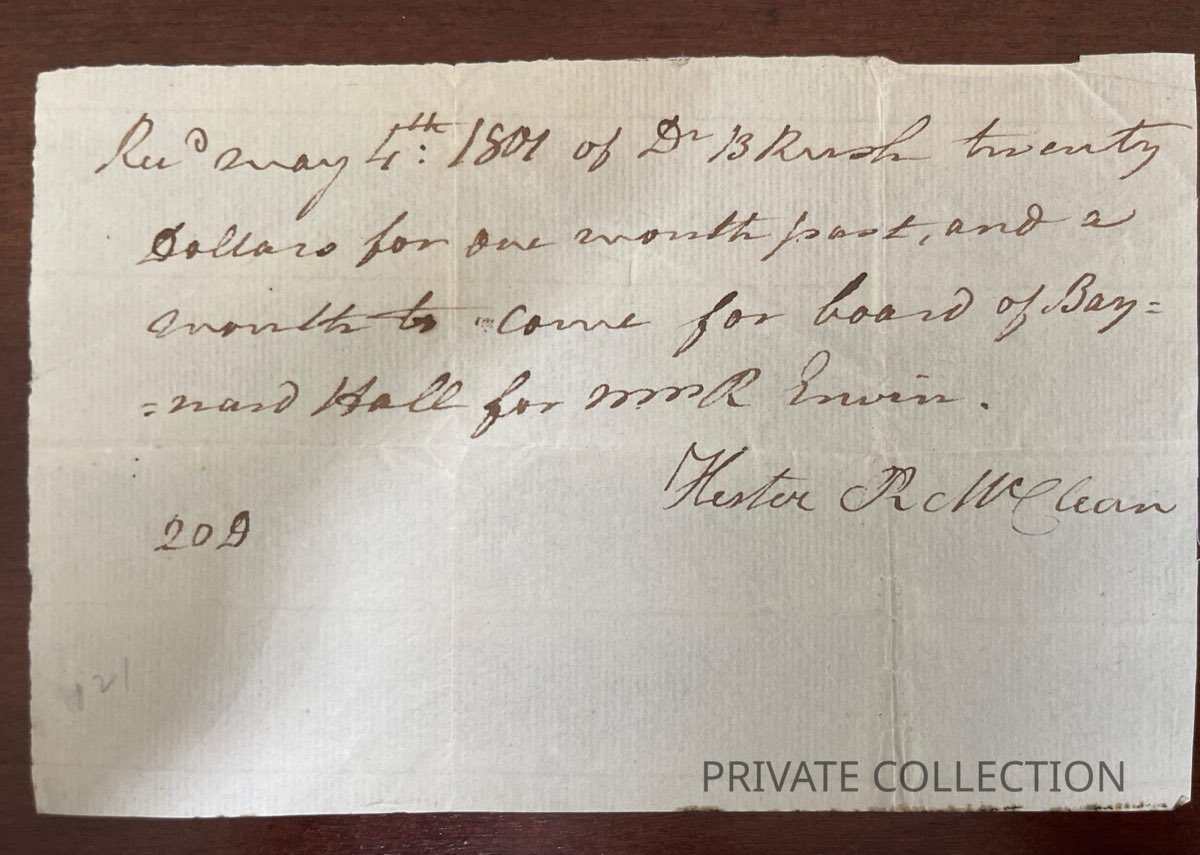 Recd may 4th: 1801 of Dr B Rush twenty
Dollars for one month past, and a
month to come for board of Bay=
=nard Hall for Wm R Erwin.
Hester R McClean
20 D
121
PRIVATE COLLECTION